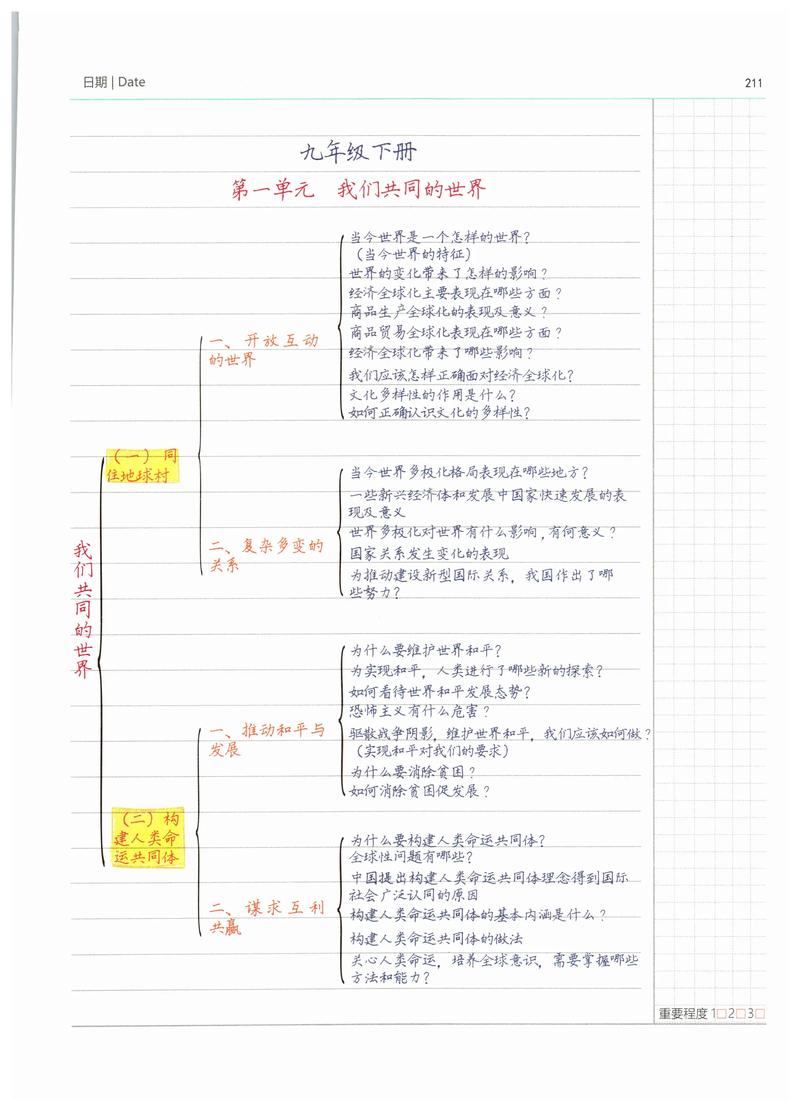 日期 | Date
211
九年级下册
第一单元 我们共同的世界
我们共同的世界
(一)同
住地球村
一、开放互动
的世界
当今世界是一个怎样的世界?
(当今世界的特征)
世界的变化带来了怎样的影响?
经济全球化主要表现在哪些方面?
商品生产全球化的表现及意义?
商品贸易全球化表现在哪些方面?
经济全球化带来了哪些影响?
我们应该怎样正确面对经济全球化?
文化多样性的作用是什么?
如何正确认识文化的多样性?
二、复杂多变的
关系
当今世界多极化格局表现在哪些地方?
一些新兴经济体和发展中国家快速发展的表
现及意义
世界多极化对世界有什么影响,有何意义?
国家关系发生变化的表现
为推动建设新型国际关系,我国作出了哪
些努力?
(二)构
建人类命
运共同体
一、推动和平与
发展
为什么要维护世界和平?
为实现和平,人类进行了哪些新的探索?
如何看待世界和平发展态势?
恐怖主义有什么危害?
驱散战争阴影,维护世界和平,我们应该如何做?
(实现和平对我们的要求)
为什么要消除贫困?
如何消除贫困促发展?
二、谋求互利
共赢
为什么要构建人类命运共同体?
全球性问题有哪些?
中国提出构建人类命运共同体理念得到国际
社会广泛认同的原因
构建人类命运共同体的基本内涵是什么?
构建人类命运共同体的做法
关心人类命运,培养全球意识,需要掌握哪些
方法和能力?
重要程度 1□2□3□